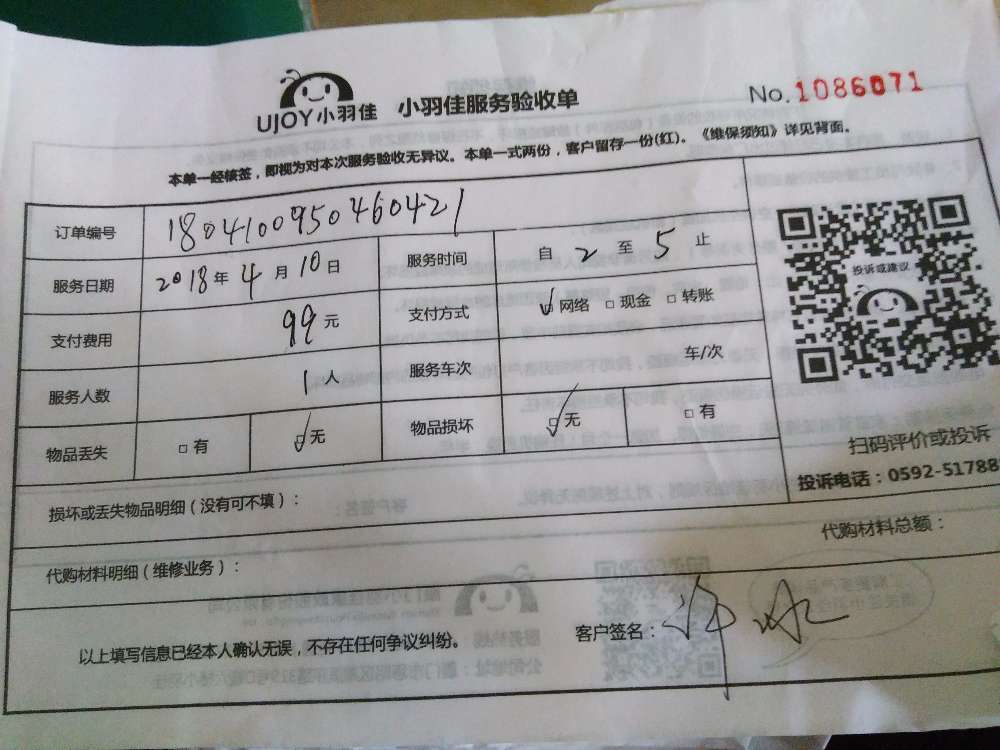 UJOY小羽佳 小羽佳服务验收单 No.1086071
本单一经核签，即视为对本次服务验收无异议。本单一式两份，客户留存一份(红)。《维保须知》详见背面。
订单编号 1804100950460421
服务日期 2018年4月10日 服务时间 自2至5止
投诉或建议
支付费用 99元 支付方式 ☑网络 □现金 □转账
服务人数 1人 服务车次 车/次
物品丢失 □有 ☑无 物品损坏 ☑无 □有
扫码评价或投诉
投诉电话：0592-517888
损坏或丢失物品明细（没有可不填）：
代购材料明细（维修业务）： 代购材料总额：
以上填写信息已经本人确认无误，不存在任何争议纠纷。 客户签名：